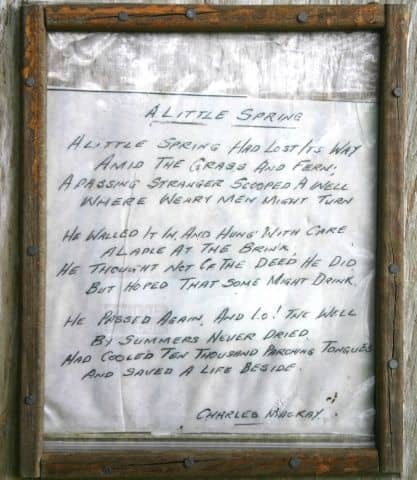 A LITTLE SPRING
A LITTLE SPRING HAD LOST ITS WAY
AMID THE GRASS AND FERN;
A PASSING STRANGER SCOOPED A WELL
WHERE WEARY MEN MIGHT TURN
HE WALLED IT IN, AND HUNG WITH CARE
A LADLE AT THE BRINK,
HE THOUGHT NOT OF THE DEED HE DID
BUT HOPED THAT SOME MIGHT DRINK.
HE PASSED AGAIN, AND LO! THE WELL
BY SUMMERS NEVER DRIED
HAD COOLED TEN THOUSAND PARCHING TONGUES
AND SAVED A LIFE BESIDE.
CHARLES MACKAY.